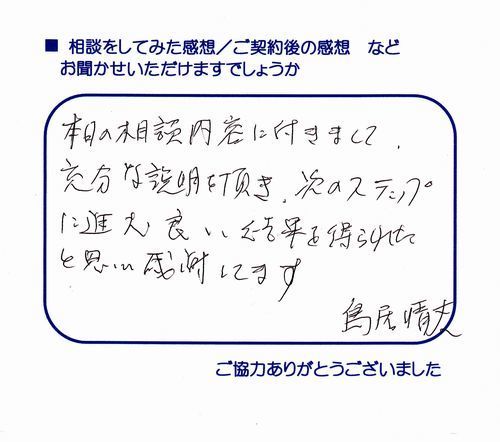 ■ 相談をしてみた感想／ご契約後の感想 など
お聞かせいただけますでしょうか
本日の相談内容に付きまして、
充分な説明を頂き、次のステップ
に進む良い結果を得られた
と思い感謝してます
鳥居晴夫
ご協力ありがとうございました